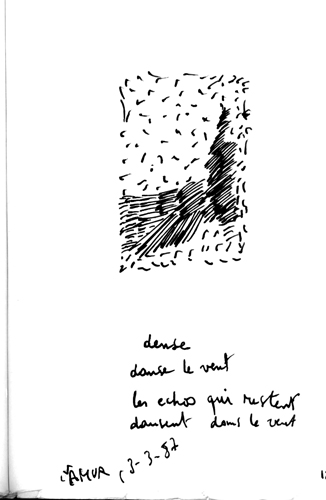 dense
danse le vent
les echos qui restent
dansent dans le vent
3-3-87